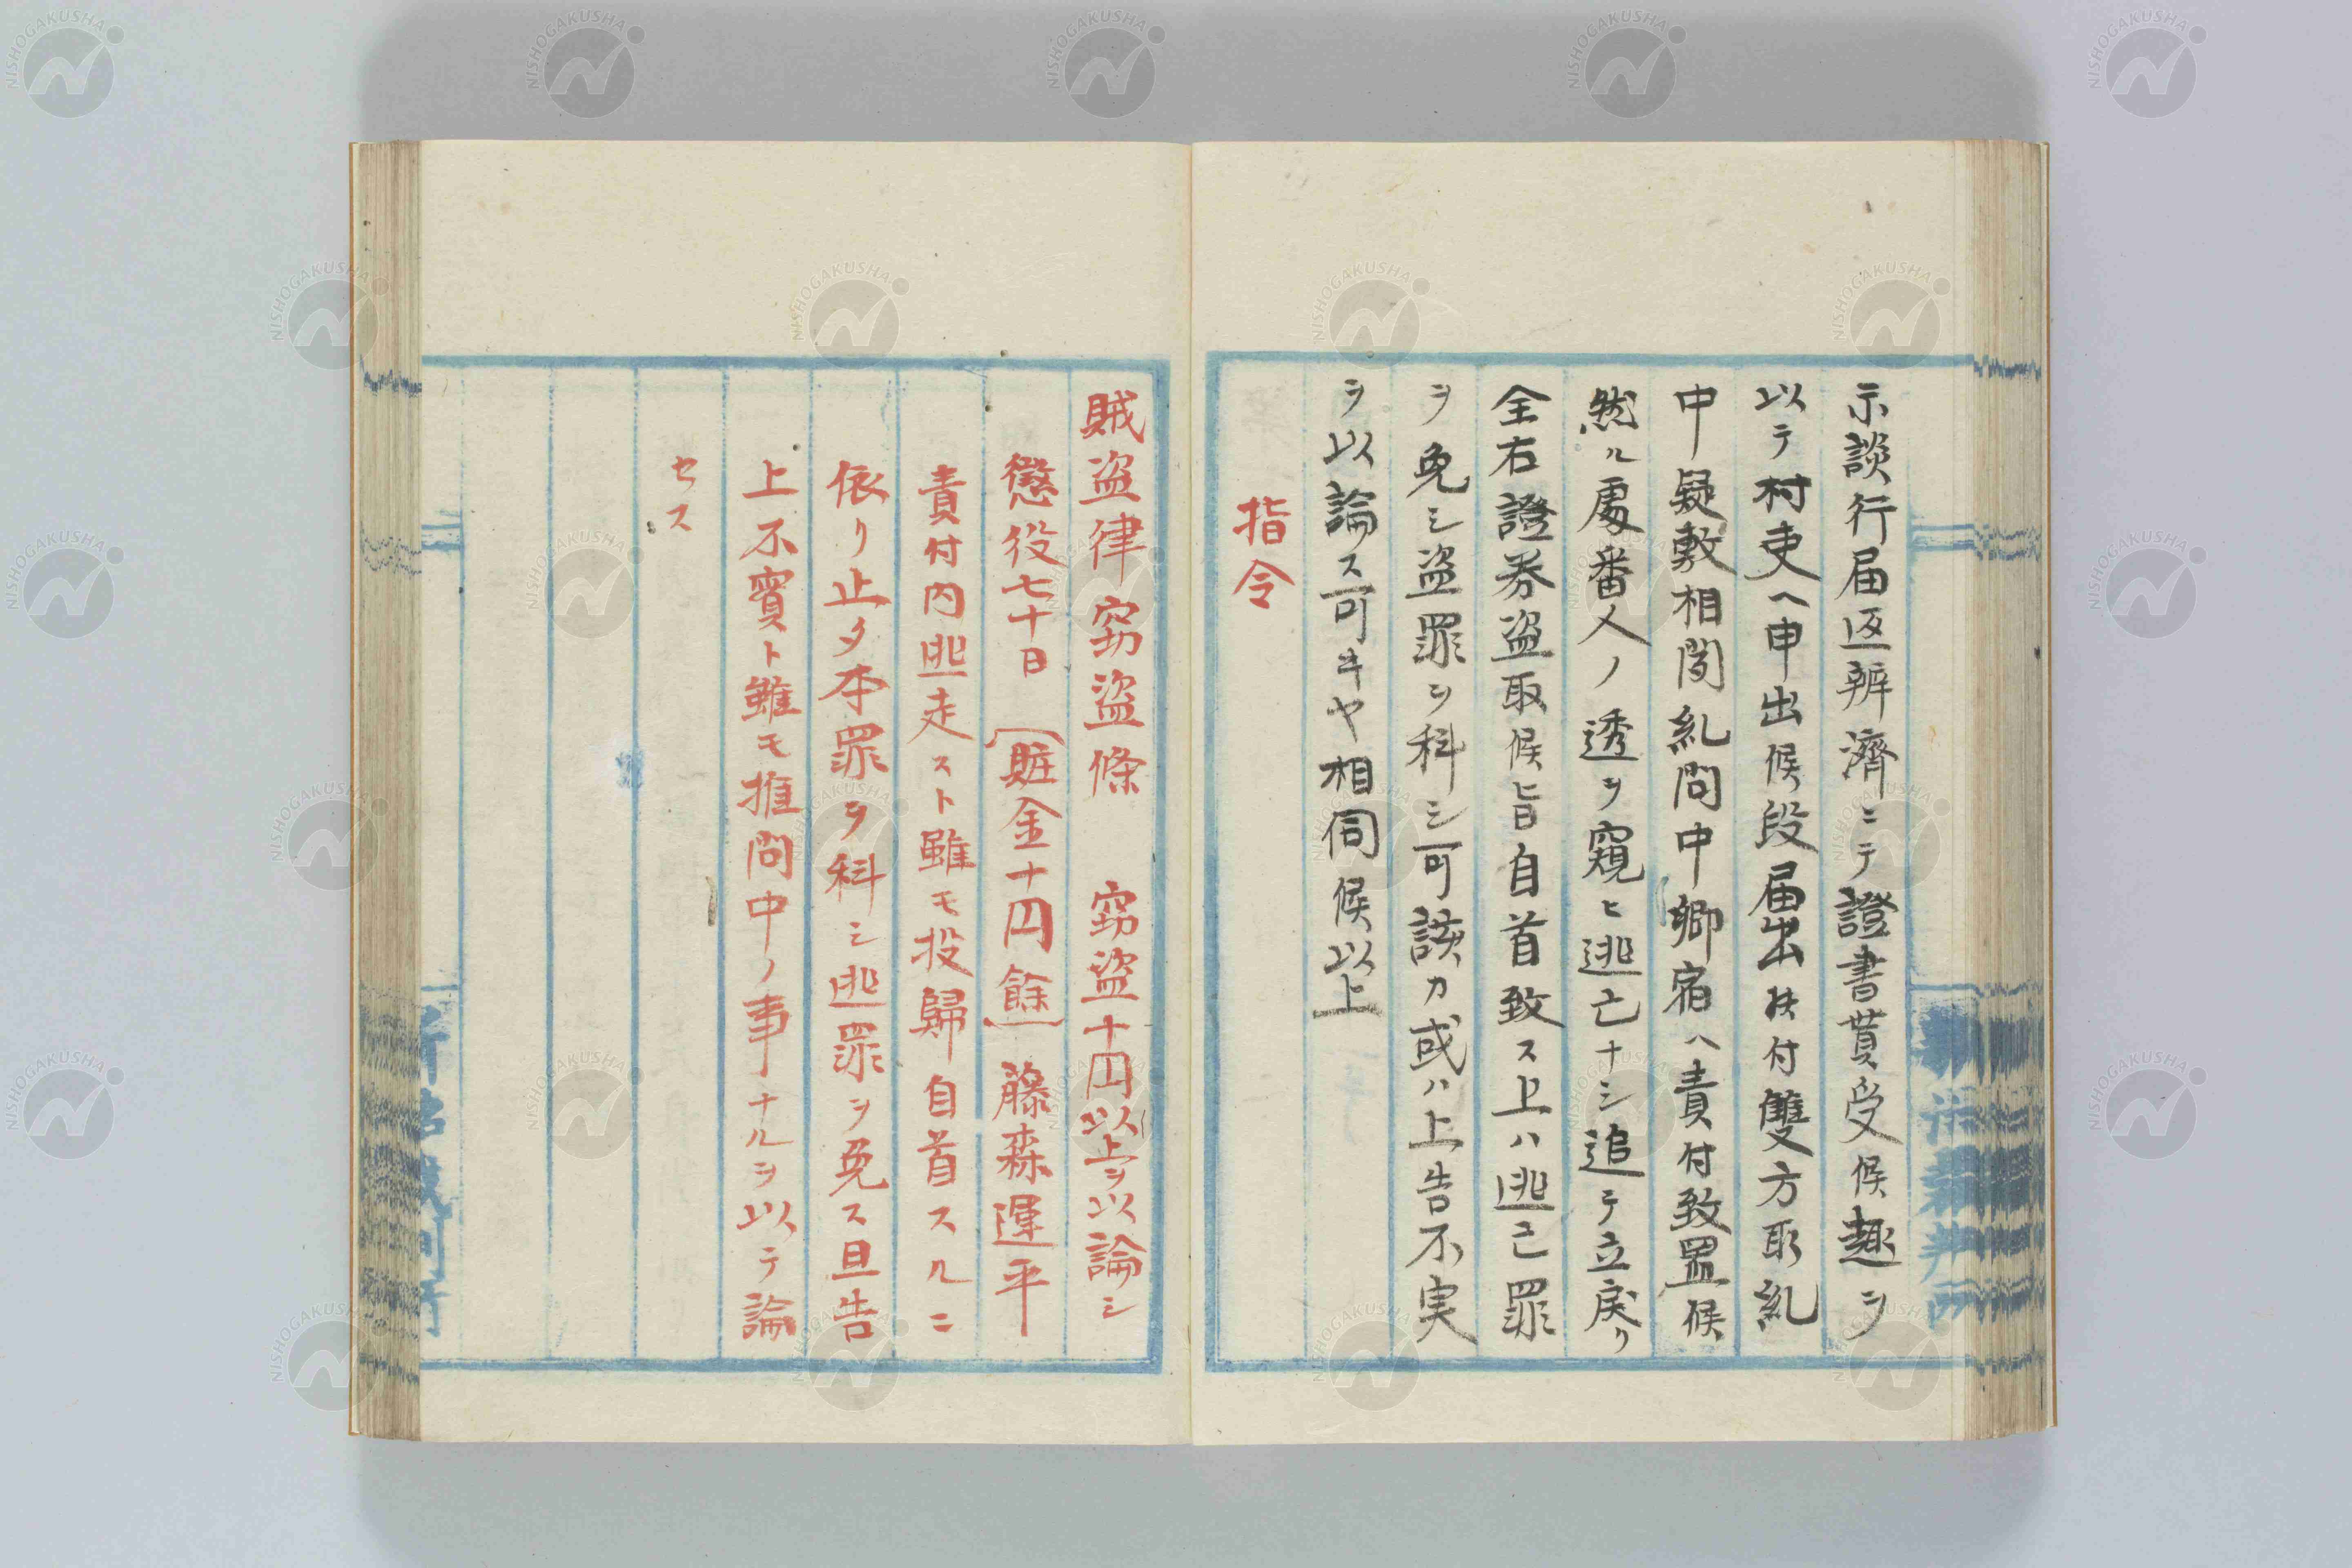 示談行届返辨濟ニテ證書貰受候趣ヲ
以テ村吏ヘ申出候段届出ニ付雙方取糺
中疑敷相聞糺問中郷宿ヘ責付致置候
然ル處番人ノ透ヲ窺ヒ逃亡ナシ追テ立戻リ
全右證券盗取候旨自首致ス上ハ逃亡罪
ヲ免シ盗罪ヲ科シ可該カ或ハ上告不実
ヲ以論ス可キヤ相伺候以上
指令
賊盗律窃盗條 窃盗十円以上ヲ以論シ
懲役七十日 (賍金十円餘) 藤森運平
責付内逃走スト雖モ投歸自首スルニ
依リ止タ本罪ヲ科シ逃罪ヲ免ス且告
上不實ト雖モ推問中ノ事ナルヲ以テ論
セス
NISHOGAKUSHA